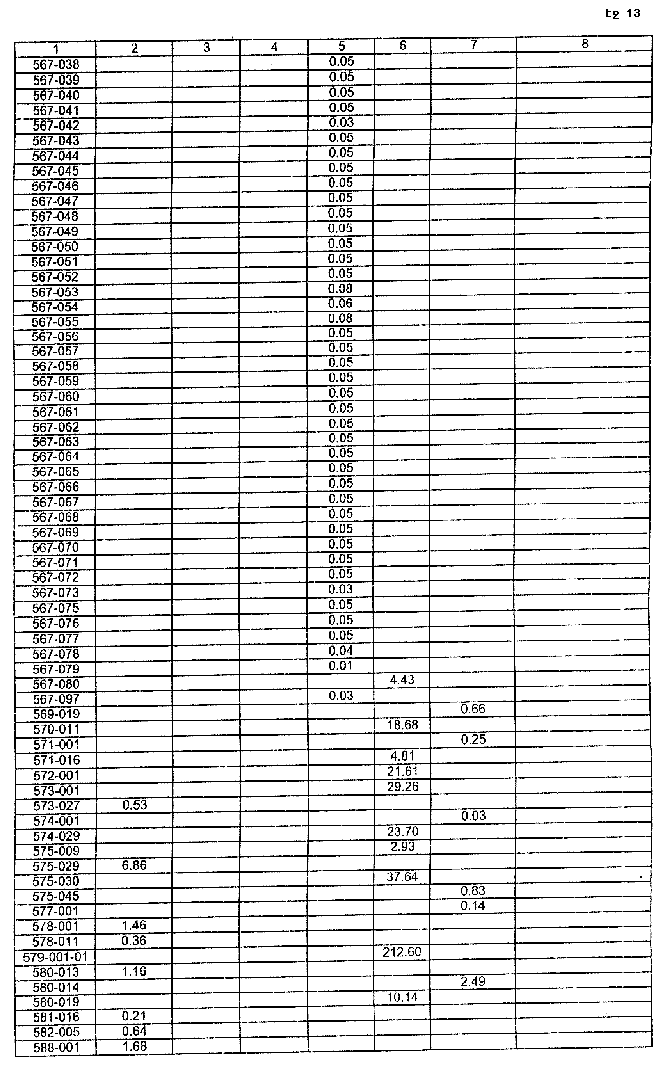 tg 13
1 2 3 4 5 6 7 8
567-038 0.05
567-039 0.05
567-040 0.05
567-041 0.05
567-042 0.03
567-043 0.05
567-044 0.05
567-045 0.05
567-046 0.05
567-047 0.05
567-048 0.05
567-049 0.05
567-050 0.05
567-051 0.05
567-052 0.05
567-053 0.08
567-054 0.06
567-055 0.08
567-056 0.05
567-057 0.05
567-058 0.05
567-059 0.05
567-060 0.05
567-061 0.05
567-062 0.05
567-063 0.05
567-064 0.05
567-065 0.05
567-066 0.05
567-067 0.05
567-068 0.05
567-069 0.05
567-070 0.05
567-071 0.05
567-072 0.05
567-073 0.03
567-075 0.05
567-076 0.05
567-077 0.05
567-078 0.04
567-079 0.01
567-080 4.43
567-097 0.03
569-019 0.66
570-011 18.68
571-001 0.25
571-016 4.81
572-001 21.61
573-001 29.26
573-027 0.53
574-001 0.03
574-029 23.70
575-009 2.93
575-029 6.86
575-030 37.64
575-045 0.83
577-001 0.14
578-001 1.46
578-011 0.36
579-001-01 212.60
580-013 1.16
580-014 2.49
580-019 10.14
581-016 0.21
582-005 0.64
588-001 1.68